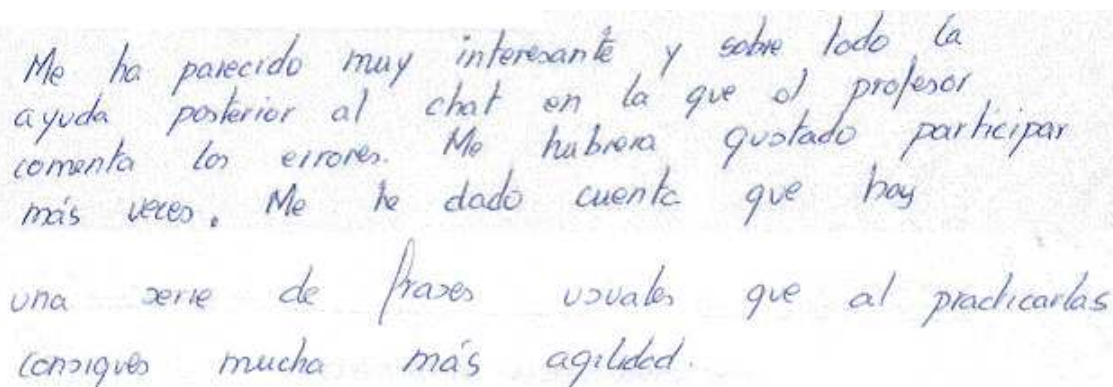 Me ha parecido muy interesante y sobre todo la
ayuda posterior al chat en la que el profesor
comenta los errores. Me hubiera gustado participar
más veces. Me he dado cuenta que hay
una serie de frases usuales que al practicarlas
consigues mucha más agilidad.